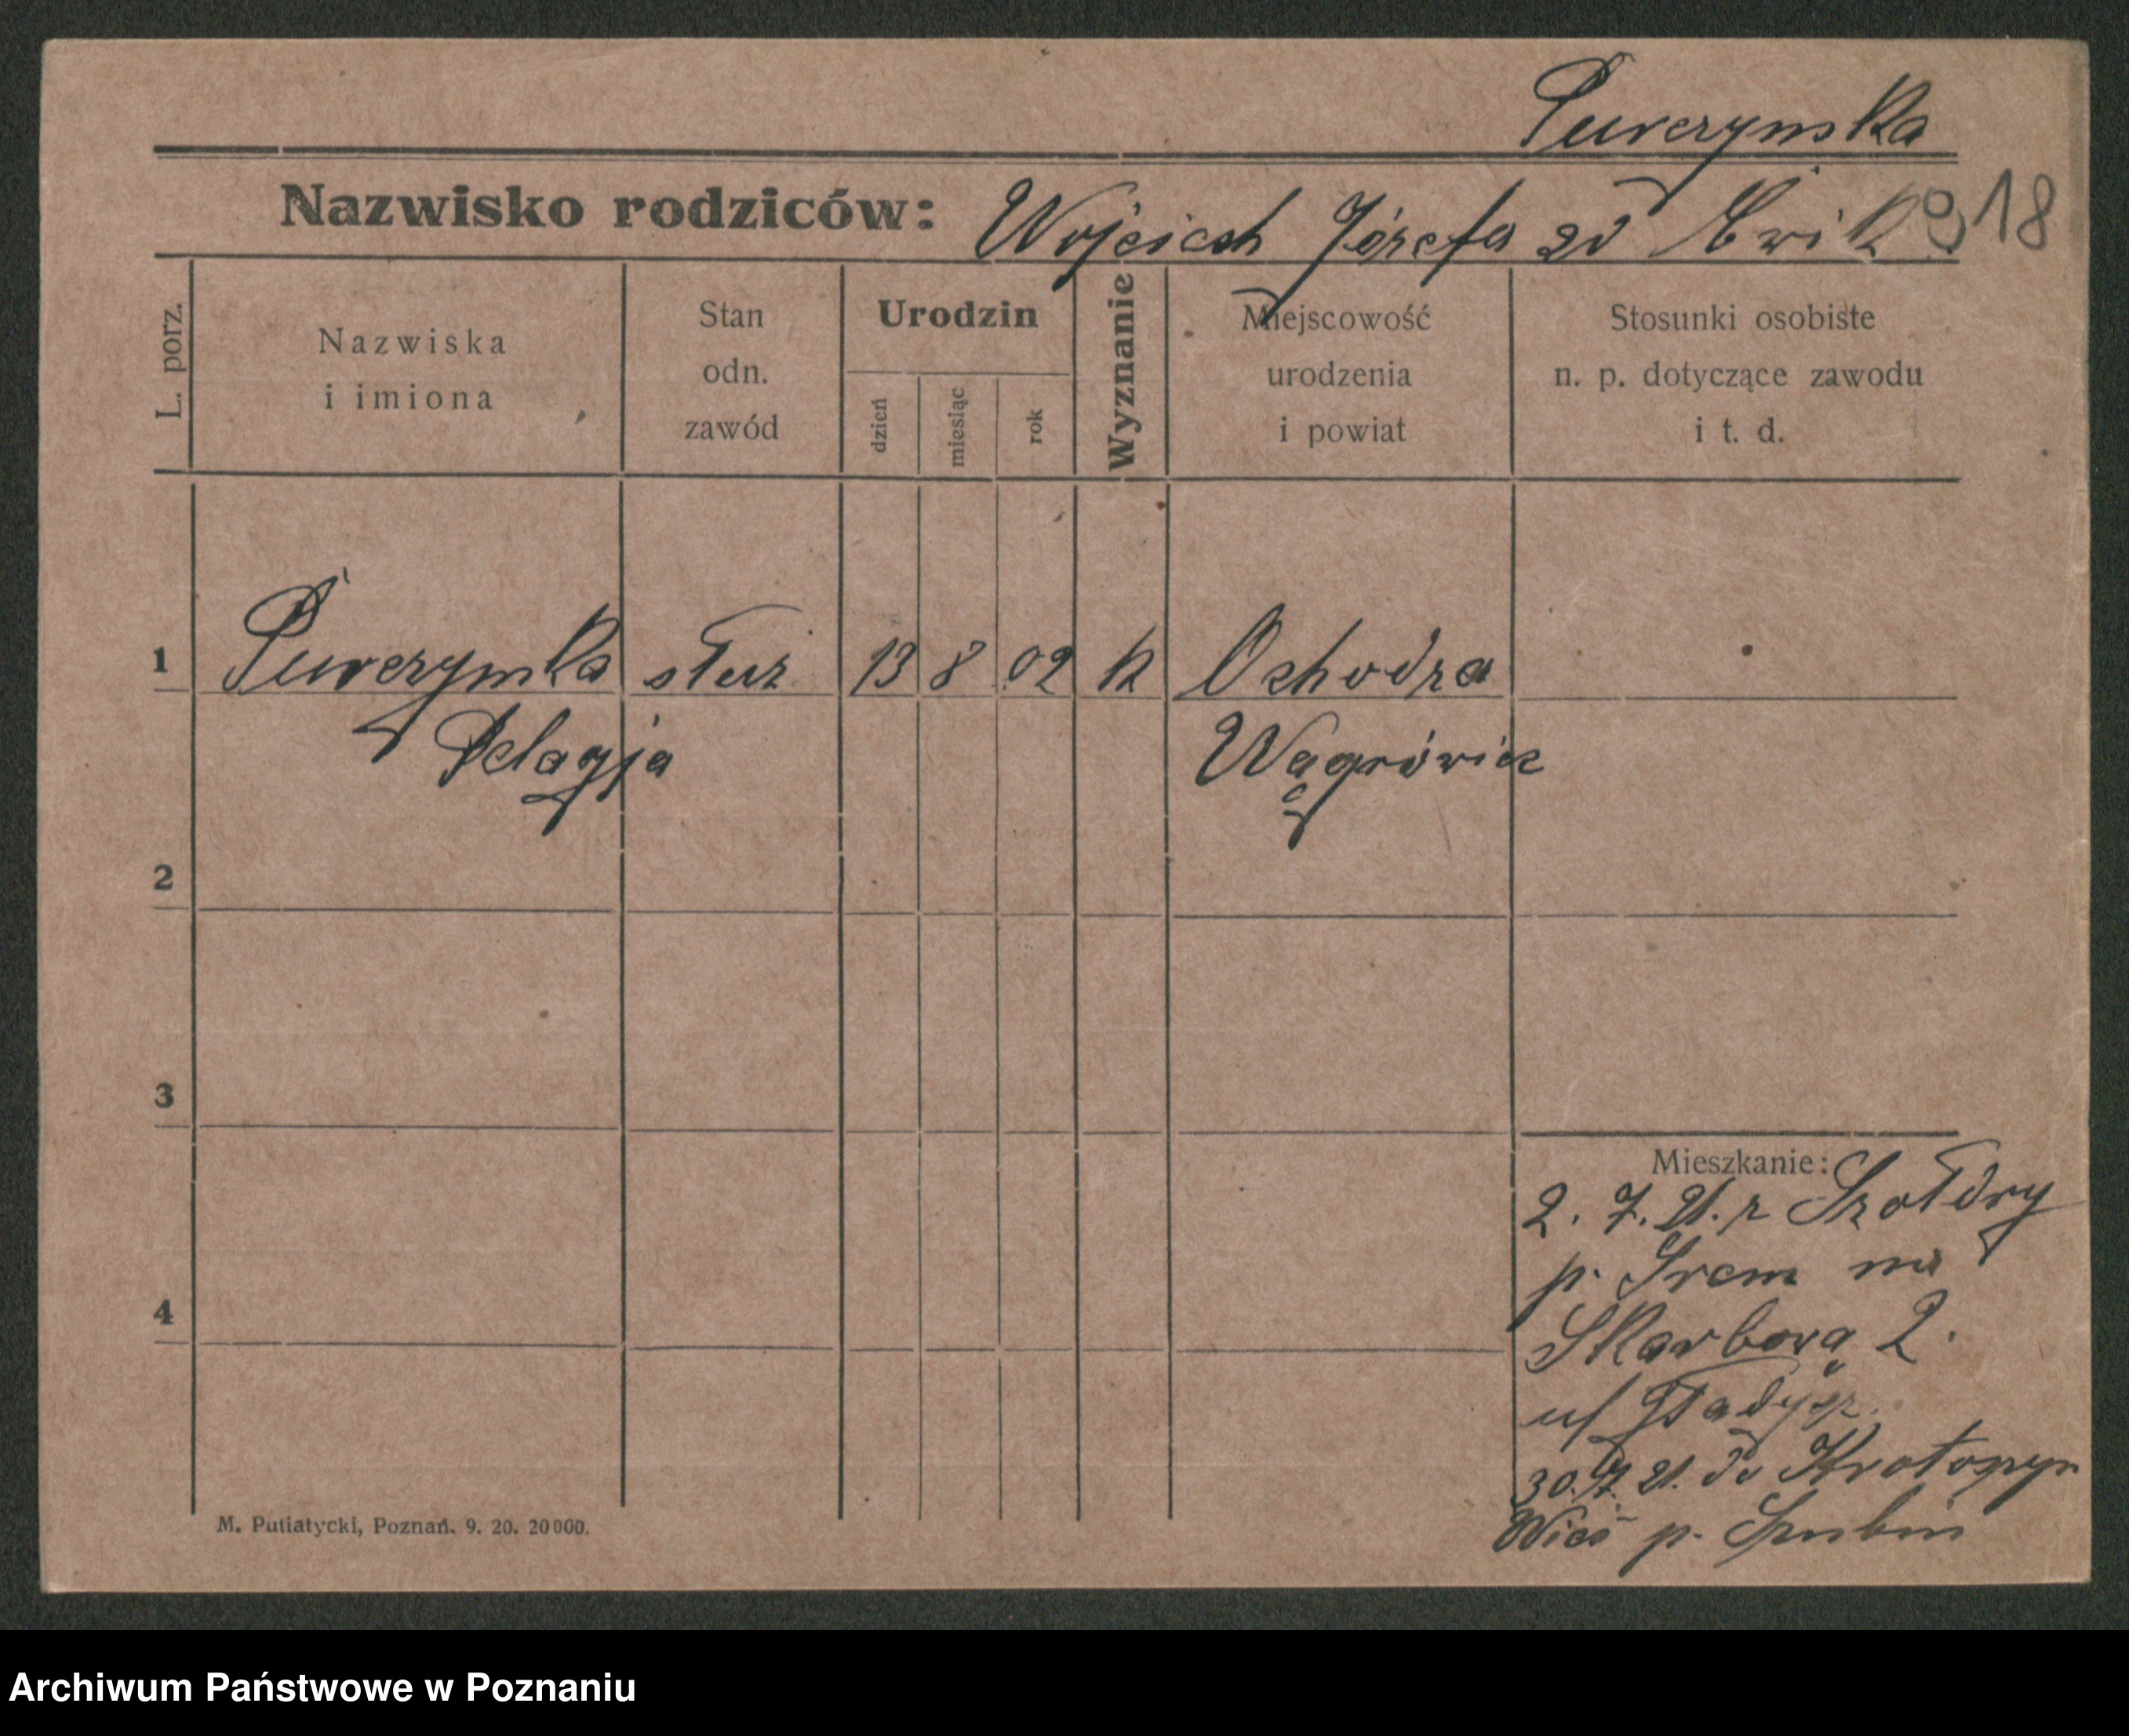 Puwczynska
Nazwisko rodziców: Wojciech Józefa zd Ewik 918
L. porz.
Nazwiska
i imiona
Stan
odn.
zawód
Urodzin
dzień
miesiąc
rok
Wyznanie
Miejscowość
urodzenia
i powiat
Stosunki osobiste
n. p. dotyczące zawodu
i t. d.
1 Puwczynska służ 13 8 02 k Ochodza
Pelagja Wągrówiec
2
3
Mieszkanie:
2. 7. 21. z Szołdry
p. Śrem na
4
Skarbową 2.
u/
30. 7. 21. do
Wieś p. Szubin
M. Putiatycki, Poznań. 9. 20. 20000.
Archiwum Państwowe w Poznaniu